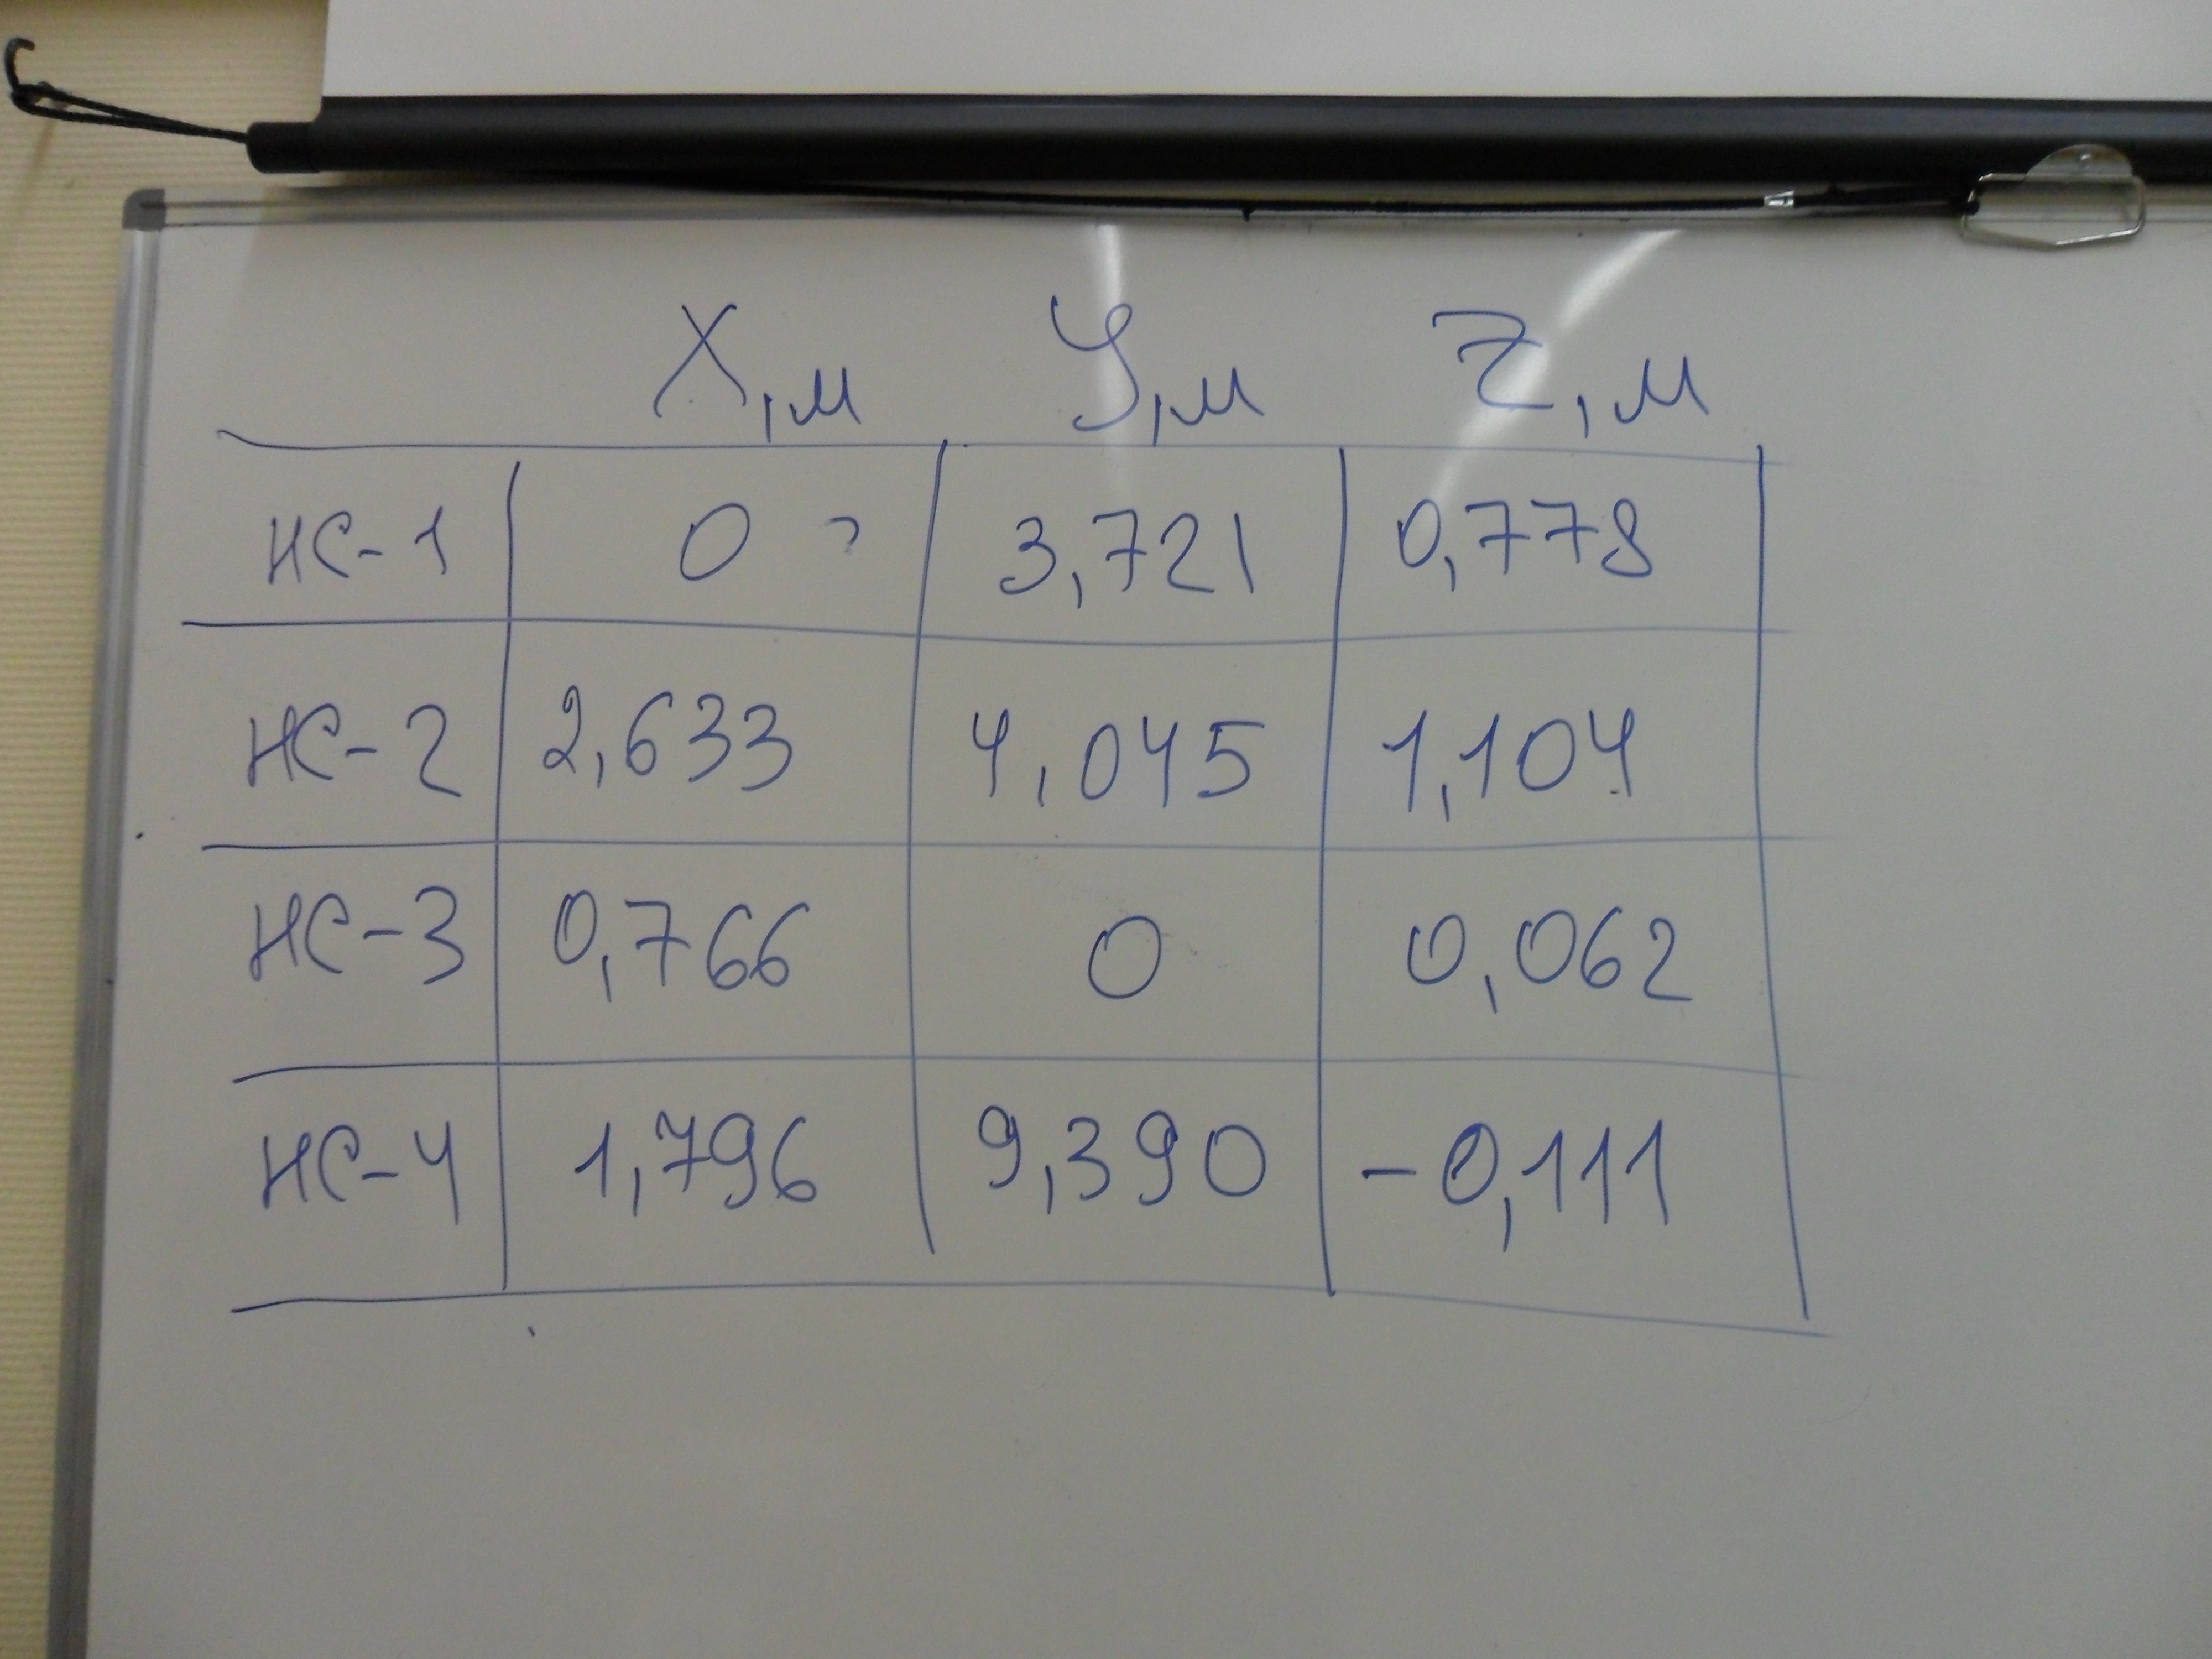 X,м У,м Z,м
НС-1 0 ? 3,721 0,778
НС-2 2,633 4,045 1,104
НС-3 0,766 0 0,062
НС-4 1,796 9,390 -0,111